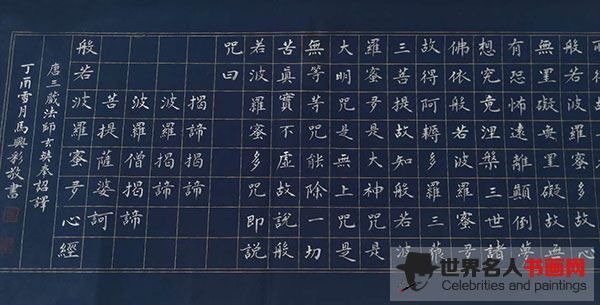 般若波羅蜜多故心
無罣礙無罣礙故無
有恐怖遠離顛倒夢
想究竟涅槃三世諸
佛依般若波羅蜜多
故得阿耨多羅三藐
三菩提故知般若波
羅蜜多是大神咒是
大明咒是無上咒是
無等等咒能除一切
苦真實不虛故說般
若波羅蜜多咒即說
咒曰
揭諦揭諦
波羅揭諦
波羅僧揭諦
菩提薩婆訶
般若波羅蜜多心經
唐三藏法師玄奘奉詔譯
丁酉雪月馬興彩敬書
世界名人书画网
Celebrities and paintings